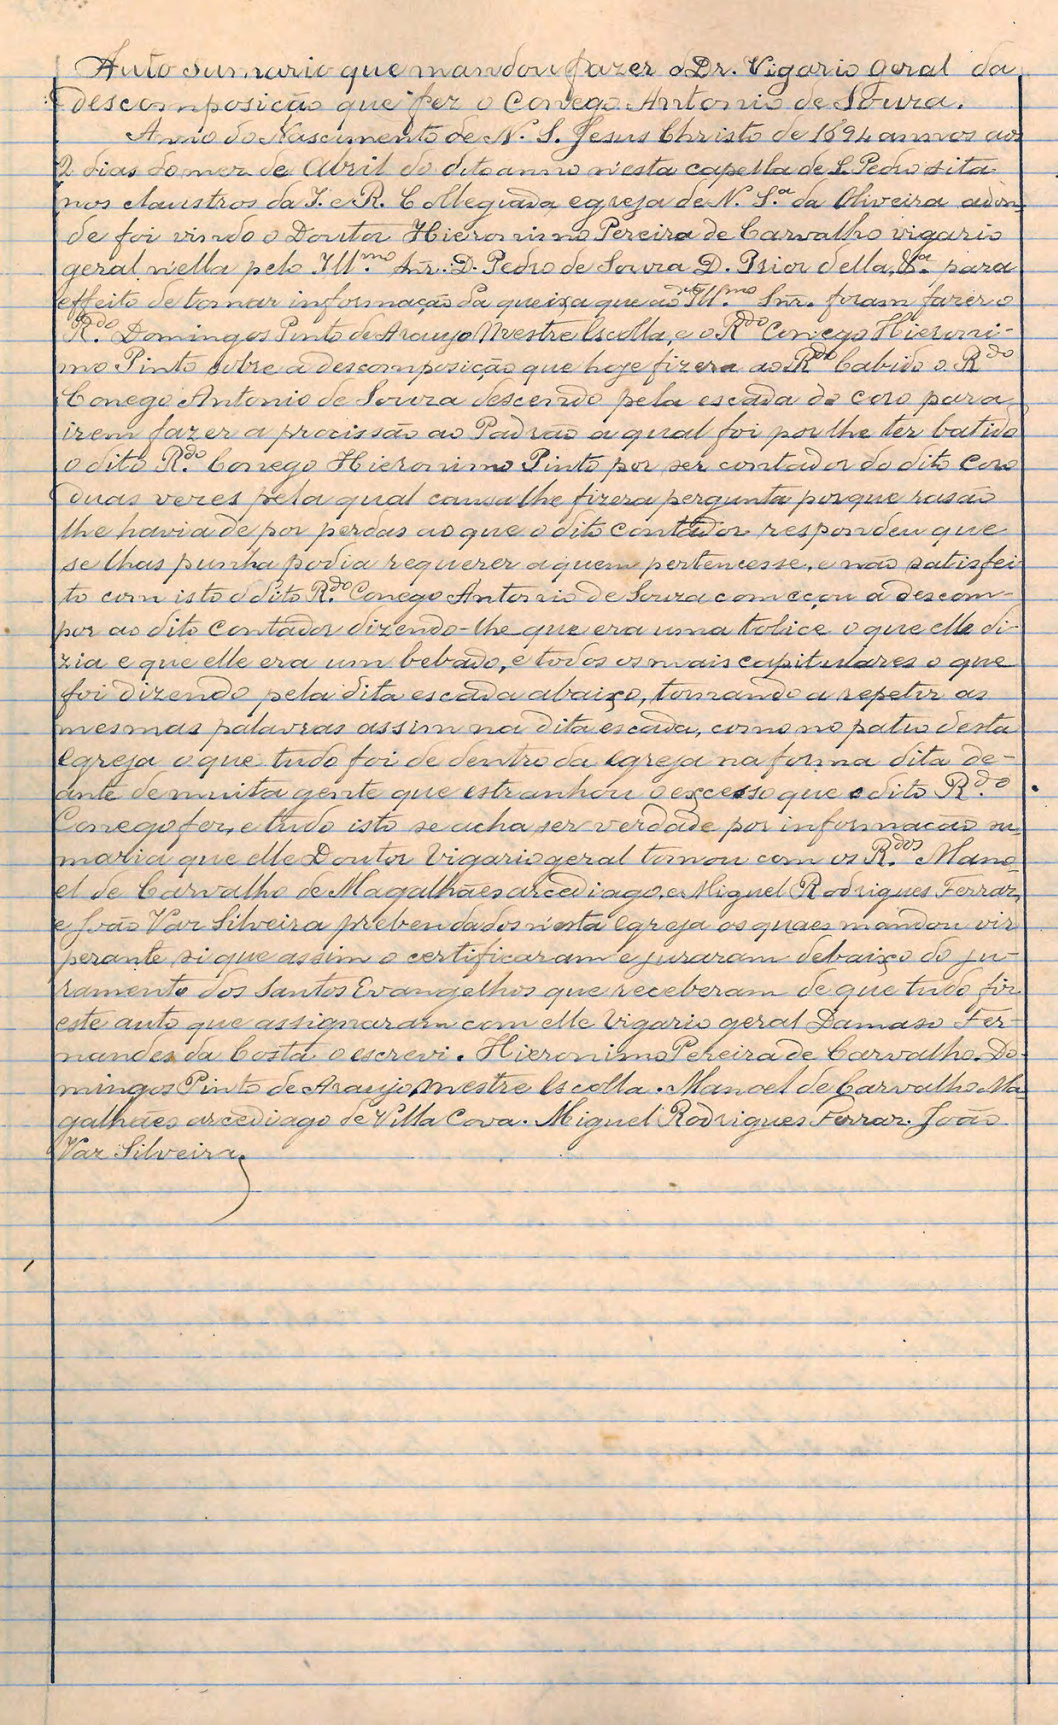 Auto sumario que mandou fazer o Dr. Vigario geral da
descomposição que fez o Conego Antonio de Souza.
Anno do Nascimento de N. S. Jesus Christo de 1694 annos aos
2 dias do mez de Abril do dito anno n'esta capella de S. Pedro sita
nos claustros da I. e R. Collegiada egreja de N. S.ª da Oliveira adon-
de foi vindo o Doutor Hieronimo Pereira de Carvalho vigario
geral n'ella pelo Ill.mo Snr. D. Pedro de Souza D. Prior della, &.ª para
effeito de tomar informação da queixa que ao Ill.mo Snr. foram fazer o
R.do Domingos Pinto de Araujo Mestre Escolla, e o R.do Conego Hieroni-
mo Pinto sobre a descomposição que hoje fizera ao R.do Cabido o R.do
Conego Antonio de Souza descendo pela escada do coro para
irem fazer a procissão ao Padrão a qual foi por lhe ter batido
o dito R.do Conego Hieronimo Pinto por ser contador do dito coro
duas vezes pela qual causa lhe fizera pergunta porque rasão
lhe havia de por perdas ao que o dito contador respondeu que
se lhas punha podia requerer a quem pertencesse, e não satisfei-
to com isto o dito R.do Conego Antonio de Souza começou a descom-
por ao dito contador dizendo-lhe que era uma tolice o que elle di-
zia e que elle era um bebado, e todos os mais capitulares o que
foi dizendo pela dita escada abaixo, tornando a repetir as
mesmas palavras assim na dita escada, como no patio desta
egreja o que tudo foi de dentro da egreja na forma dita de-
ante de muita gente que estranhou o excesso que o dito R.do
Conego fez, e tudo isto se acha ser verdade por informação su-
maria que elle Doutor Vigario geral tomou com os R.dos Mano-
el de Carvalho de Magalhães arcediago, e Miguel Rodrigues Ferraz,
e João Vaz Silveira prebendados n'esta egreja os quaes mandou vir
perante si que assim o certificaram e juraram debaixo do ju-
ramento dos Santos Evangelhos que receberam de que tudo fiz
este auto que assignaram com elle Vigario geral Damaso Fer-
nandes da Costa o escrevi. Hieronimo Pereira de Carvalho. Do-
mingos Pinto de Araujo, Mestre Escolla. Manoel de Carvalho Ma-
galhães arcediago de Villa Cova. Miguel Rodrigues Ferraz. João
Vaz Silveira.